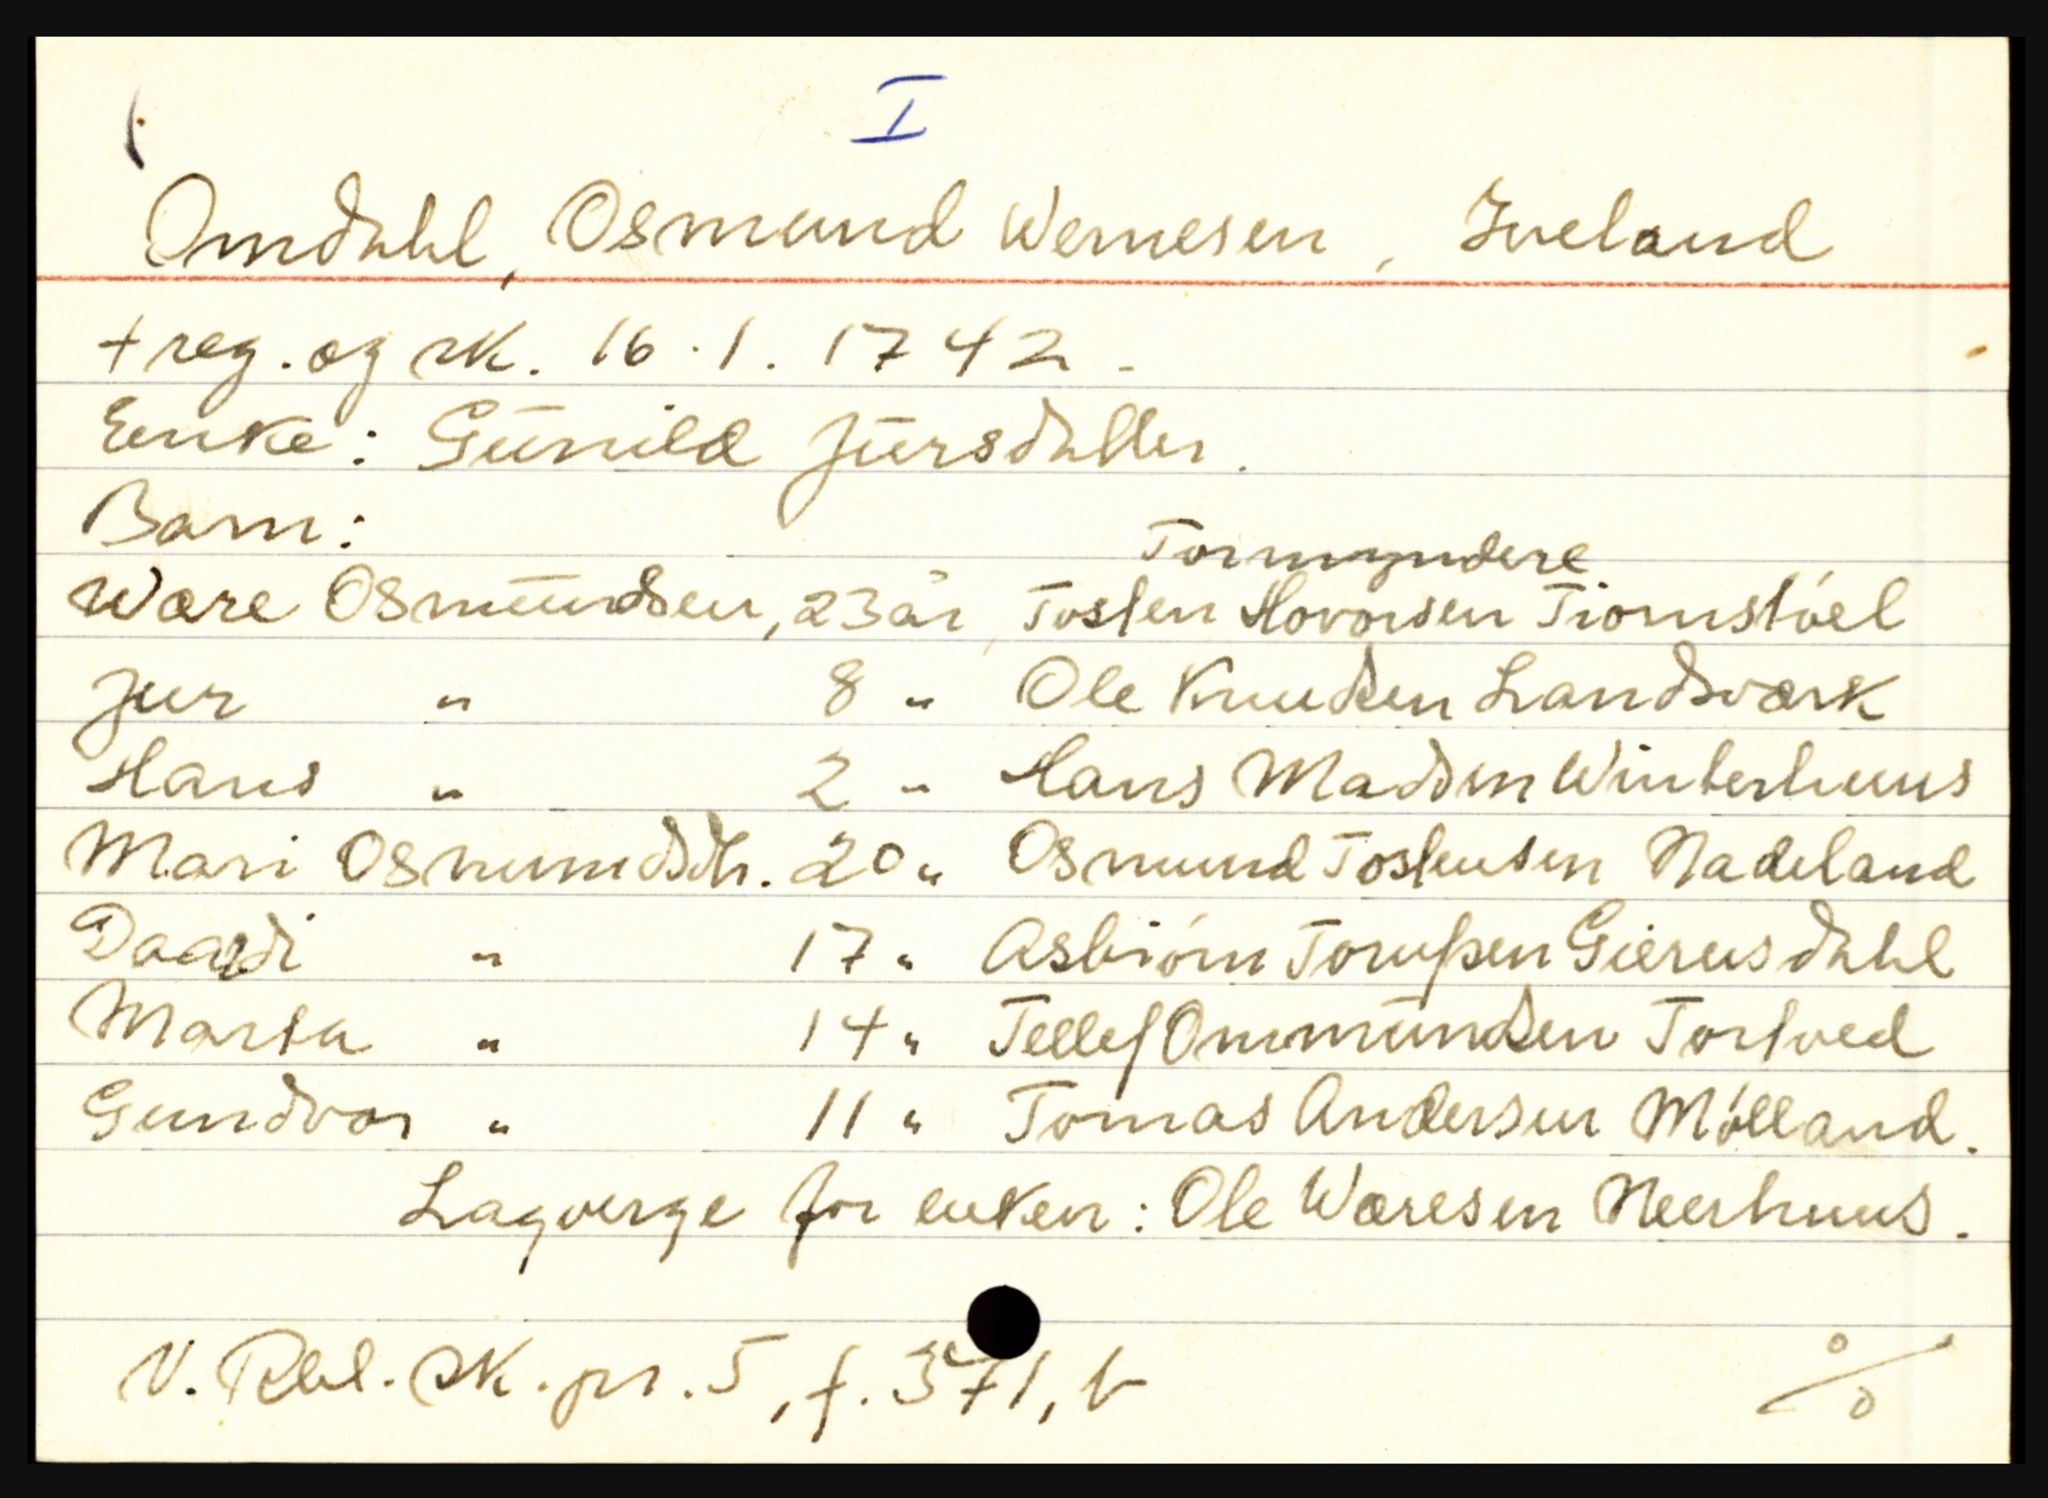 I
Omdahl, Osmund Wernesen, Iveland
+ reg. og sk. 16.1.1742.
Enke: Gunild Jursdatter.
Barn:
Formyndere
Ware Osmundsen, 23 år, Tosten Hovorsen Tiomstöel
Jur " 8 " Ole Knudsen Landsværk
Hans " 2 " Hans Madsen Winterhuus
Mari Osmundsdtr. 20 " Osmund Tostensen Nadeland
Daardi " 17 " Asbiörn Torupsen Giereusdahl
Marta " 14 " Tellef Ommundsen Tortved
Gundvor " 11 " Tomas Andersen Mölland.
Lagverge for enken: Ole Waresen Neerhuus.
V. Rbl. sk. pr. 5, f. 371, b